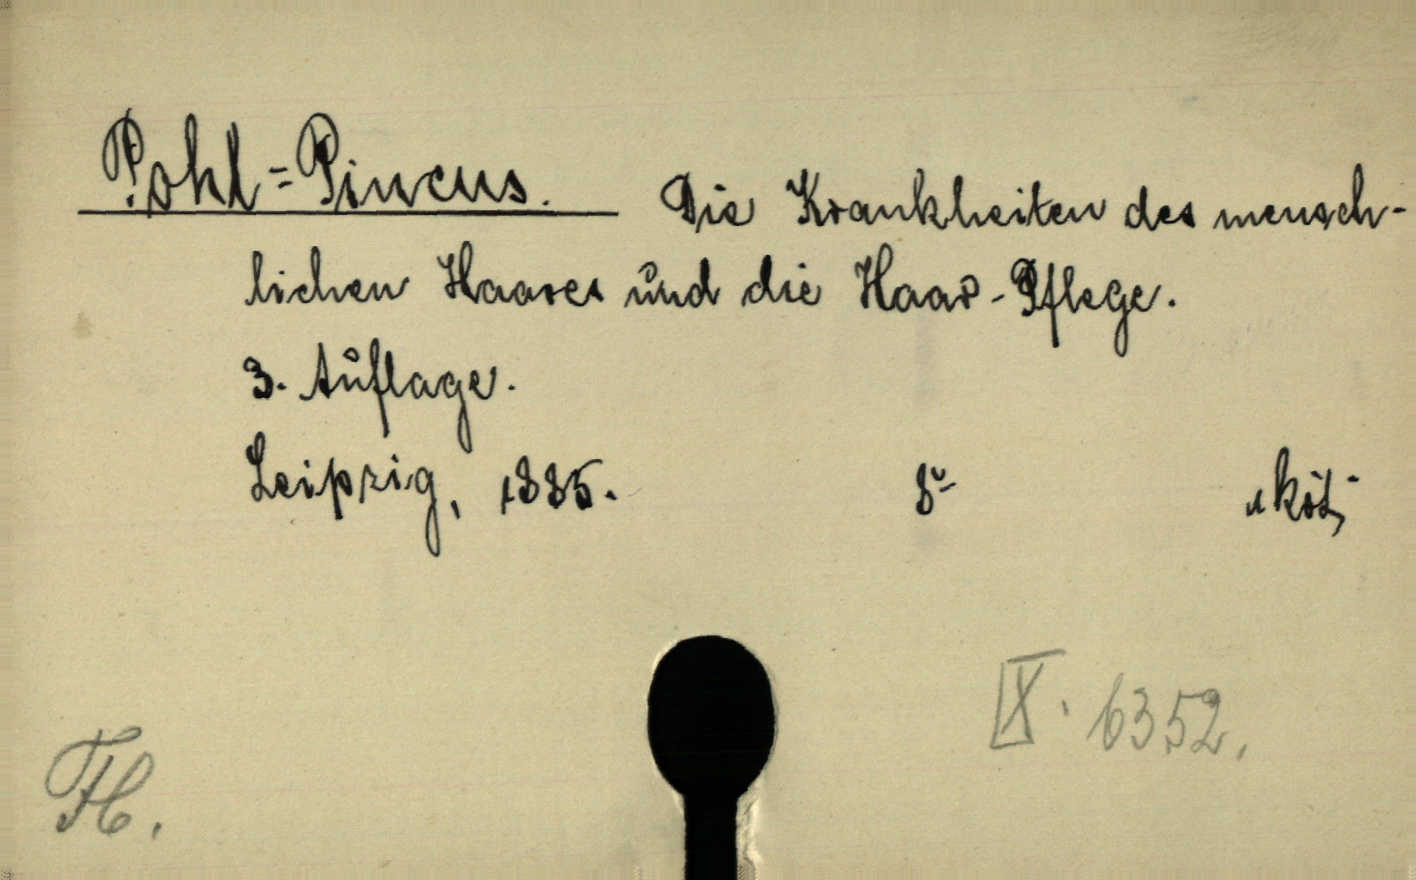 Pohl=Pincus. Die Krankheiten des mensch-
lichen Haares und die Haar-Pflege.
3. Auflage.
Leipzig, 1885. 8º köt.
IX. 6352.
H.